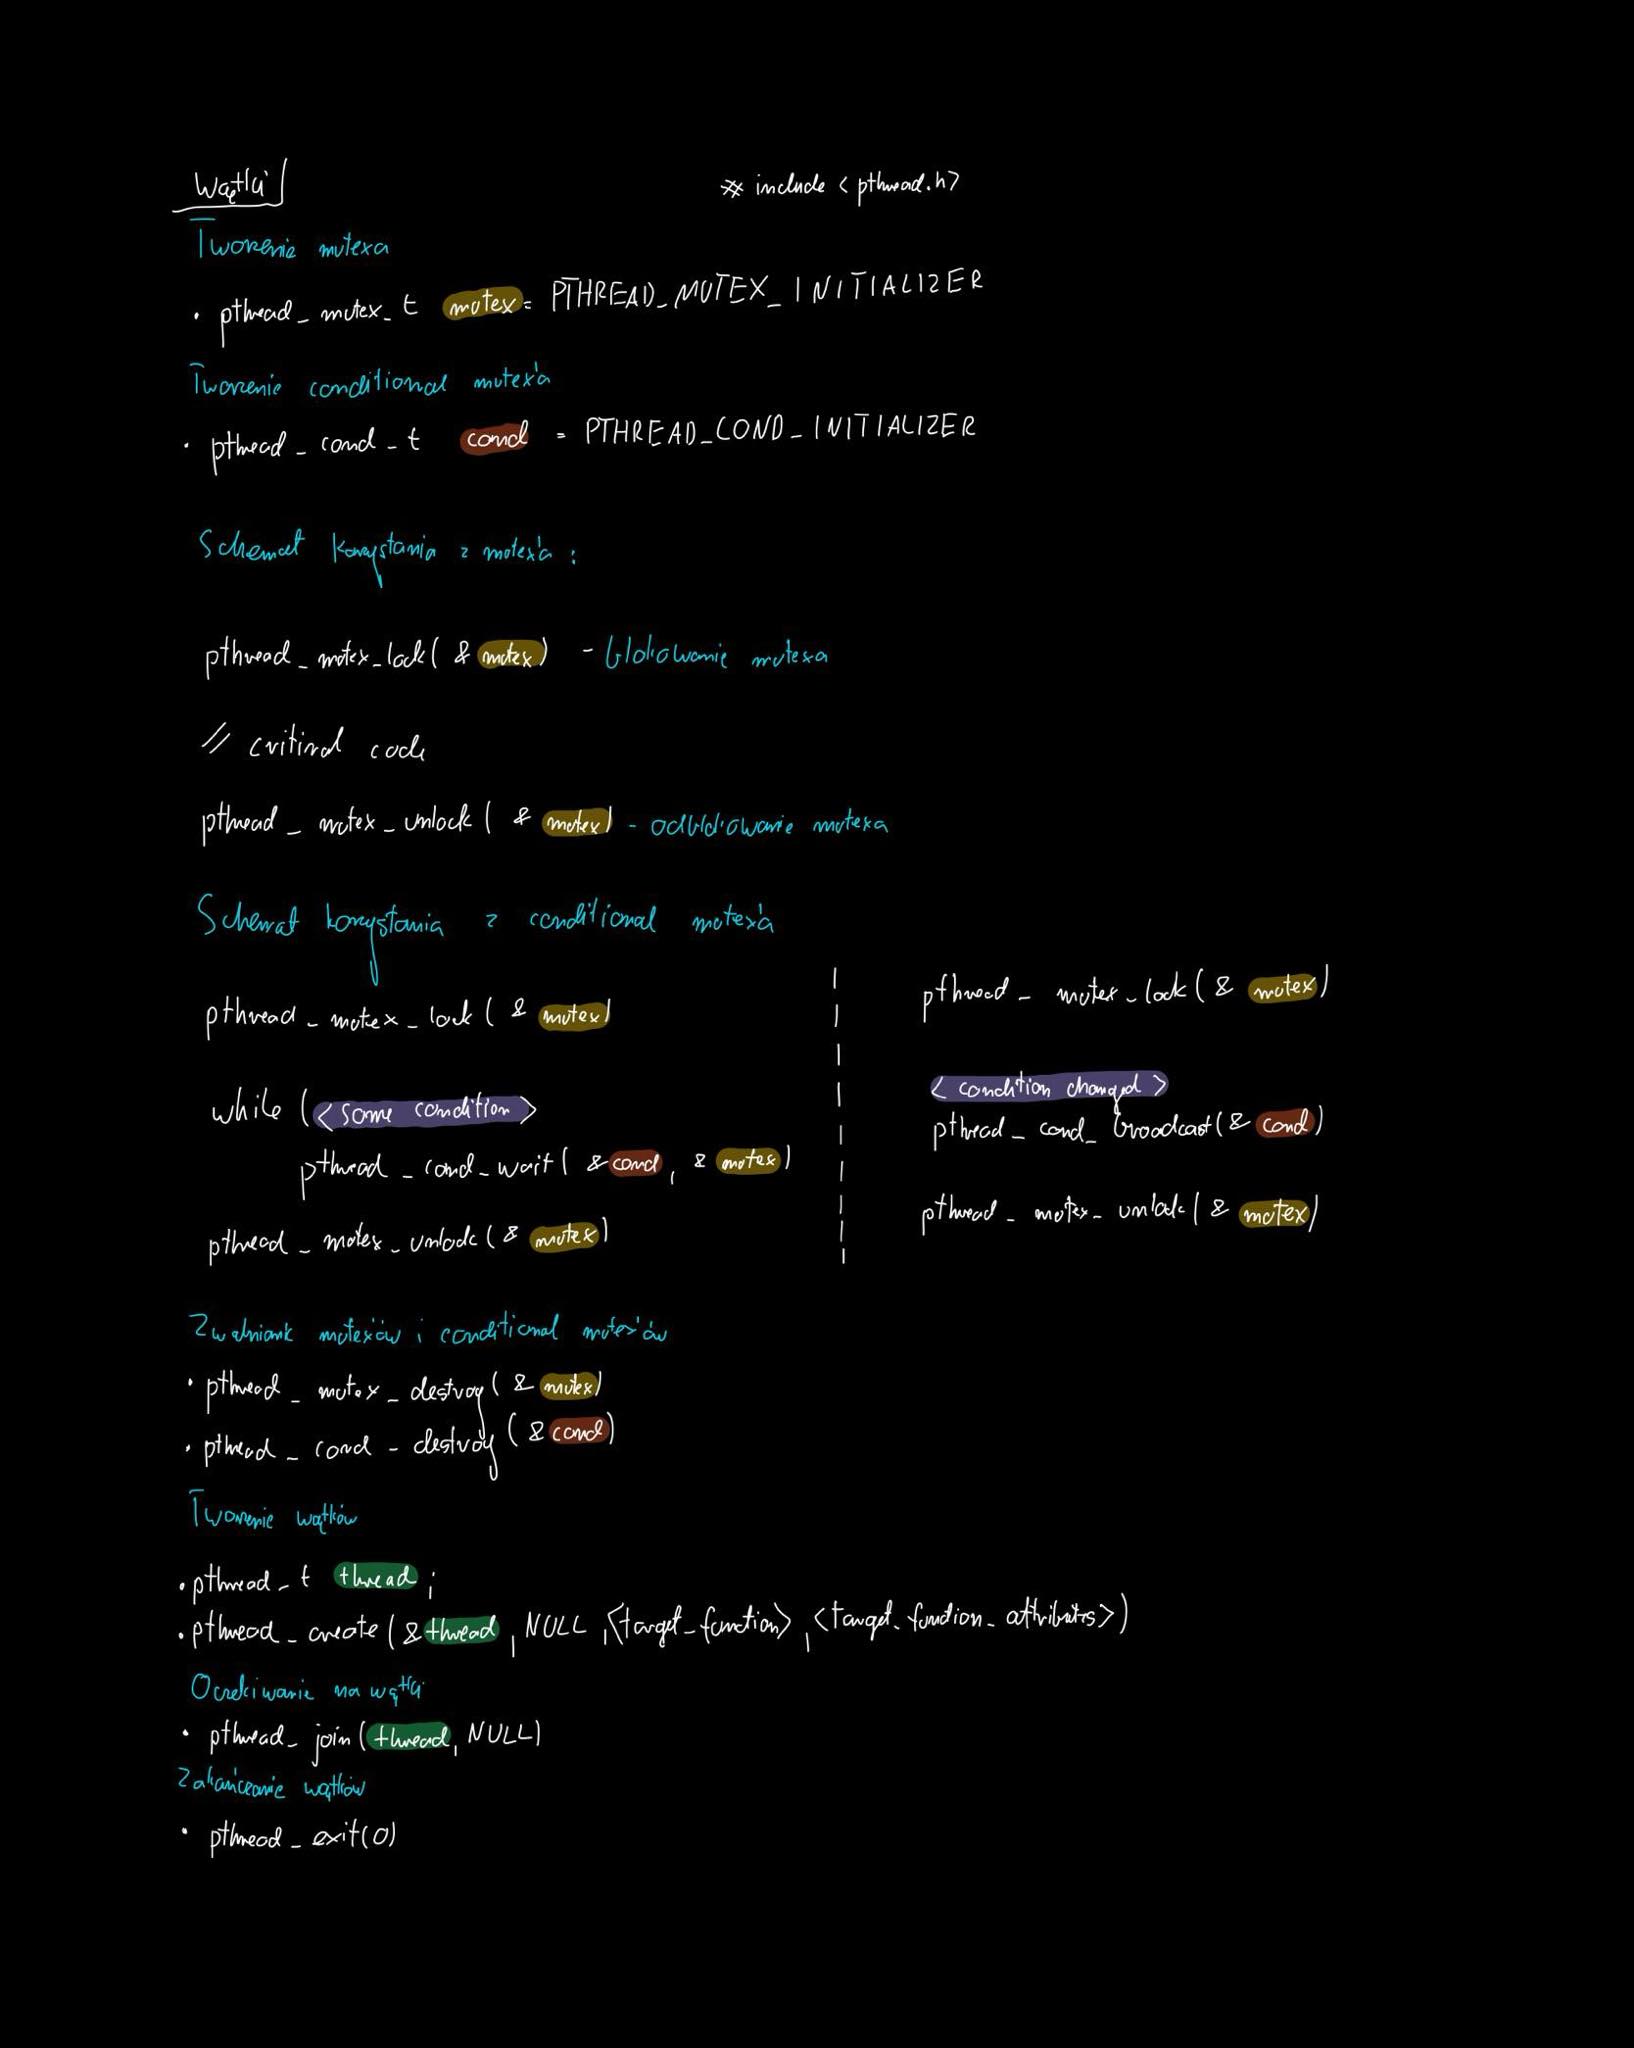 Wątki
# include <pthread.h>
Tworzenie mutexa
• pthread_mutex_t mutex = PTHREAD_MUTEX_INITIALIZER
Tworzenie conditional mutex'a
• pthread_cond_t cond = PTHREAD_COND_INITIALIZER
Schemat korzystania z mutex'a :
pthread_mutex_lock( & mutex) - blokowanie mutexa
// critical code
pthread_mutex_unlock( & mutex) - odblokowanie mutexa
Schemat korzystania z conditional mutex'a
pthread_mutex_lock( & mutex)
while ( < some condition >
pthread_cond_wait( & cond, & mutex)
pthread_mutex_unlock( & mutex)
pthread_mutex_lock( & mutex)
< condition changed >
pthread_cond_broadcast( & cond)
pthread_mutex_unlock( & mutex)
Zwalnianie mutex'ów i conditional mutex'ów
• pthread_mutex_destroy( & mutex)
• pthread_cond_destroy( & cond)
Tworzenie wątków
• pthread_t thread ;
• pthread_create( & thread, NULL, <target_function>, <target_function_attributes>)
Oczekiwanie na wątki
• pthread_join( thread, NULL)
Zakańczanie wątków
• pthread_exit(0)